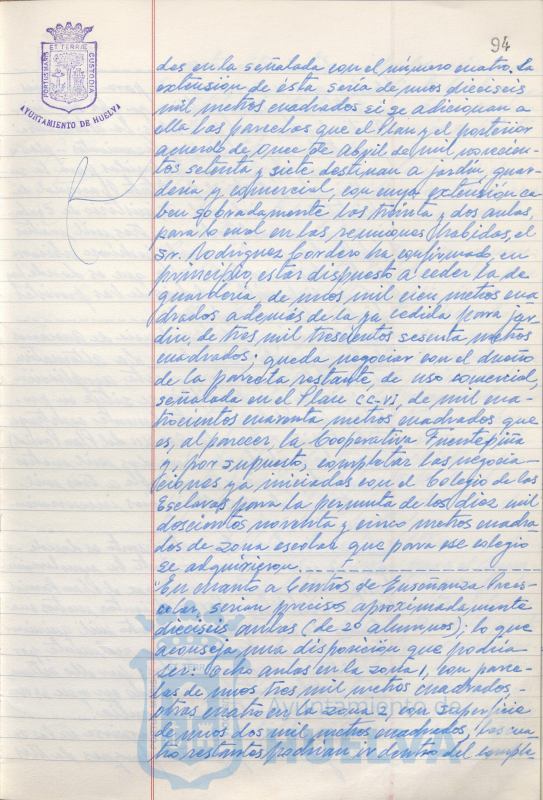 94
PORTUS MARIS
ET TERRAE
CUSTODIA
AYUNTAMIENTO DE HUELVA
das en la señalada con el número cuatro. La
extensión de ésta sería de unos dieciseis
mil metros cuadrados si se adicionan a
ella las parcelas que el Plan y el posterior
acuerdo de once de abril de mil novecien-
tos setenta y siete destinan a jardín, guar-
dería y comercial, con cuya extensión ca-
ben sobradamente las treinta y dos aulas,
para lo cual en las reuniones habidas, el
Sr. Rodríguez Cordero ha confirmado, en
principio, estar dispuesto a ceder la de
guardería de unos mil cien metros cua-
drados además de la ya cedida para jar-
din, de tres mil trescientos sesenta metros
cuadrados; queda negociar con el dueño
de la parcela restante, de uso comercial,
señalada en el Plan CC-VI, de mil cua-
trocientos cuarenta metros cuadrados que
es, al parecer, la Cooperativa Fuentepiña
y, por supuesto, completar las negocia-
ciones ya iniciadas con el Colegio de las
Esclavas para la permuta de los diez mil
doscientos noventa y cinco metros cuadra-
dos de zona escolar que para ese colegio
se adquirieron.
"En cuanto a Centros de Enseñanza Prees-
colar, serian precisos aproximadamente
dieciseis aulas (de 20 alumnos); lo que
aconseja una disposición que podría
ser: Ocho aulas en la zona 1, con parce-
las de unos tres mil metros cuadrados,-
otras cuatro en la zona 2, con superficie
de unos dos mil metros cuadrados, las cua-
tro restantes podrían ir dentro del comple-
Ayuntamiento de
HUELVA